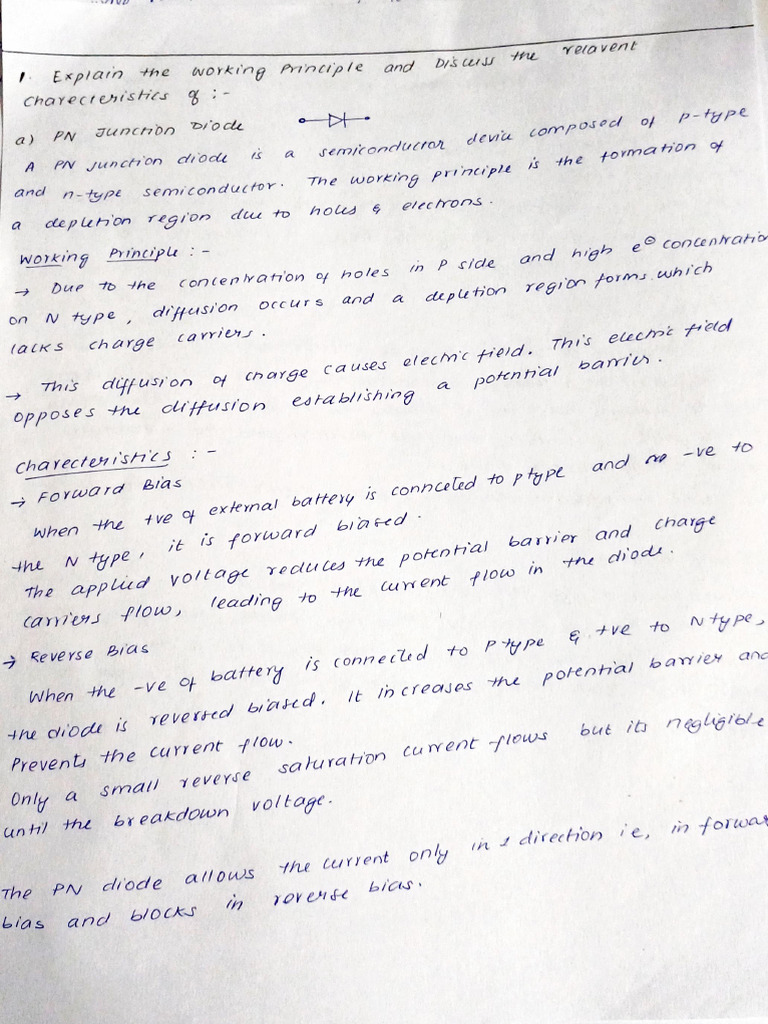 1. Explain the working Principle and Discuss the relavent
charecteristics of :-
a) PN Junction Diode
A PN junction diode is a semiconductor device composed of p-type
and n-type semiconductor. The working principle is the formation of
a depletion region due to holes & electrons.
Working Principle :-
→ Due to the concentration of holes in P side and high e⊖ concentration
on N type, diffusion occurs and a depletion region forms which
lacks charge carriers.
→ This diffusion of charge causes electric field. This electric field
opposes the diffusion establishing a potential barrier.
Charecteristics :-
→ Forward Bias
When the +ve of external battery is connceted to p type and -ve to
the N type, it is forward biased.
The applied voltage reduces the potential barrier and charge
carriers flow, leading to the current flow in the diode.
→ Reverse Bias
When the -ve of battery is connected to P type & +ve to N type,
the diode is reversed biased. It increases the potential barrier and
Prevents the current flow.
Only a small reverse saturation current flows but its negligible
until the breakdown voltage.
The PN diode allows the current only in 1 direction ie, in forwar
bias and blocks in reverse bias.